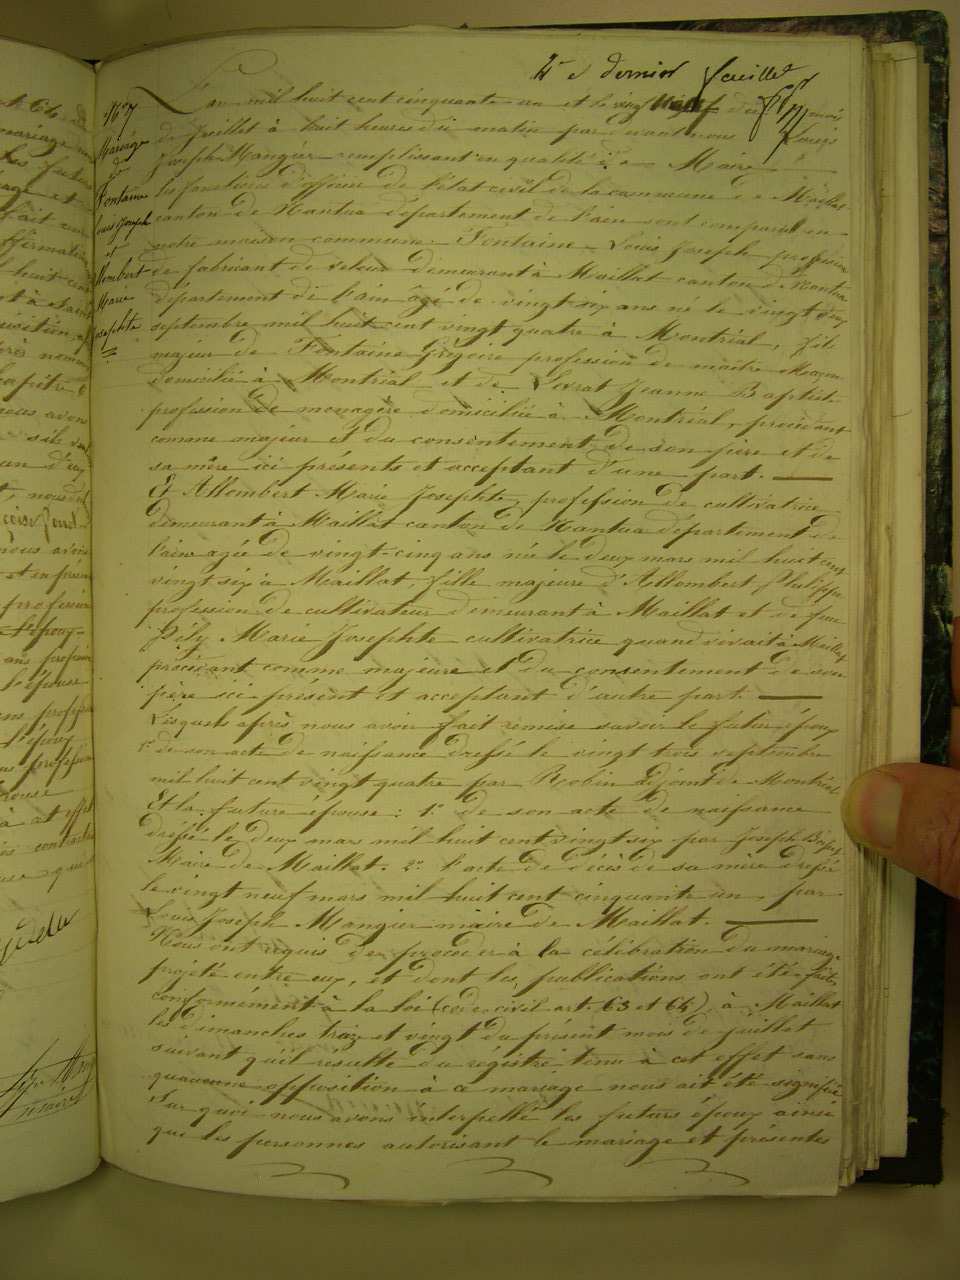 4e et dernier feuillet
N° 7
Mariage
de
Fontaine
Louis Joseph
et
Allombert
Marie
Josephte
L'an mil huit cent cinquante un et le vingt du mois
de Juillet à huit heures du matin par devant nous Louis
Joseph Mangier remplissant en qualité de Maire
les fonctions d'officier de l'état civil de la commune de Maillat
canton de Nantua département de l'ain sont comparus en
notre maison commune Fontaine Louis Joseph profession
de fabricant de velours demeurant à Maillat canton de Nantua
département de l'ain âgé de vingt six ans né le vingt deux
septembre mil huit cent vingt quatre à Montréal, fils
majeur de Fontaine Grégoire profession de maître Maçon
domicilié à Montréal et de Jeanne Baptiste
profession de menagère domiciliée à Montréal, procédant
comme majeur et du consentement de son père et de
sa mère ici présents et acceptant d'une part.
Et Allombert Marie Josephte, profession de cultivatrice
demeurant à Maillat canton de Nantua département de
l'ain agée de vingt-cinq ans née le deux mars mil huit cent
vingt six à Maillat fille majeure d'Allombert Philippe
profession de cultivateur demeurant à Maillat et de feue
Marie Josephte cultivatrice quand vivait à Maillat
procédant comme majeure et du consentement de son
père ici présent et acceptant d'autre part.
Lesquels après nous avoir fait remise savoir le futur époux
1° de son acte de naissance dressé le vingt trois septembre
mil huit cent vingt quatre par Robin adjoint de Montréal
Et la future épouse: 1° de son acte de naissance
dressé le deux mars mil huit cent vingt six par Joseph
Maire de Maillat. 2° l'acte de décès de sa mère dressé
le vingt neuf mars mil huit cent cinquante un, par
Louis Joseph Mangier maire de Maillat.
Nous ont requis de procéder à la célébration du mariage
projeté entre eux, et dont les publications ont été faites
conformément à la loi (code civil art. 63 et 64) à Maillat
les dimanches treize et vingt du présent mois de Juillet
suivant qu'il résulte du régistre tenu à cet effet sans
qu'aucune opposition à ce mariage nous ait été signifiée
Sur quoi nous avons interpellé les futurs époux ainsi
que les personnes autorisant le mariage et présentes